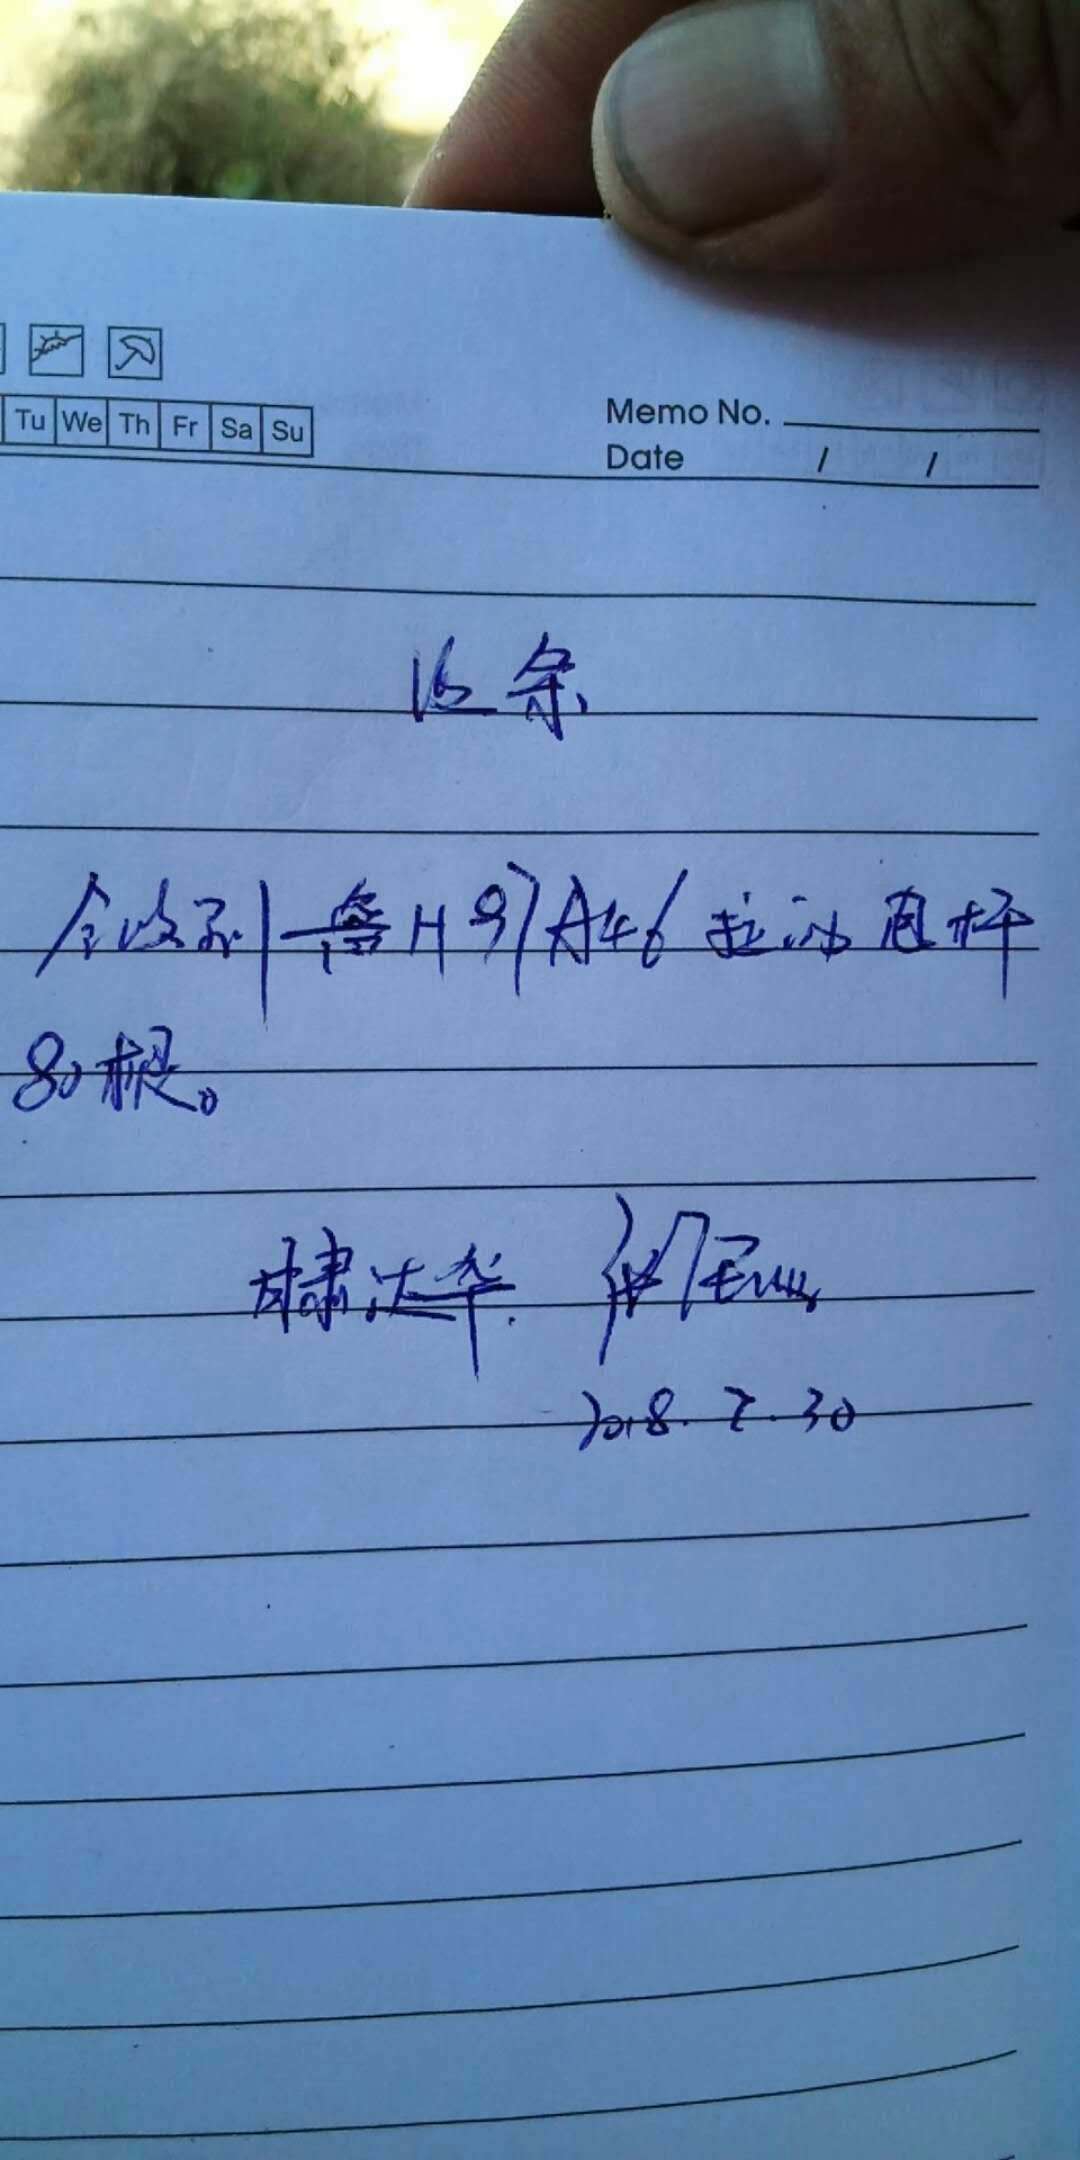 Tu We Th Fr Sa Su
Memo No.
Date / /
收条
今收到鲁H97A46拉
80根。
甘肃达华
2018.7.30